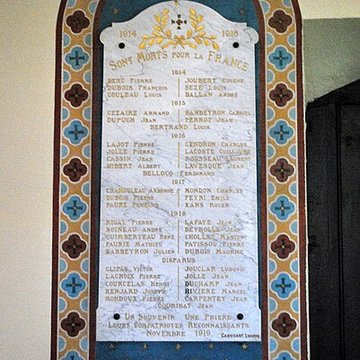 1914 1918
SONT MORTS POUR LA FRANCE
1914
BERC PIERRE JOUBERT EUGÈNE
DUBOIS FRANÇOIS SEZE LOUIS
COULEAU LOUIS BALLAN ANDRÉ
1915
CEZAIRE ARMAND BARBEYRON GABRIEL
DUPUCH JEAN PERROT JEAN
BERTRAND LOUIS
1916
LAJOT PIERRE GENDRON CHARLES
JOLLE PIERRE LACOSTE GUILLAUME
CASSIN JEAN ROUSSEAU LAURENT
HIBERT ALBERT LAVESQUE JEAN
BELLOCQ FERDINAND
1917
MONDON CHARLES
DUBOIS PIERRE FEYRI EMILE
FAURE
1918
RIGAL PIERRE LAFAYE JEAN
BOINEAU ANDRÉ BEYROLLE JEAN
GUIMBERTEAU RENÉ
FAURIE MATHIEU PATISSOU PIERRE
BARBEYRON JULIEN DUBOIS MAURICE
DISPARUS
GLIPAS VICTOR JOUCLAR LUDOVIC
LACROIX PIERRE JOLLE JEAN
COURCELAS HENRI DUCHAMP JEAN
RENJARD JOSEPH RIVIÈRE MARCEL
MONDOUX PIERRE CARPENTEY JEAN
JEAN
UN SOUVENIR UNE PRIÈRE
LEURS COMPATRIOTES RECONNAISSANTS
NOVEMBRE 1919